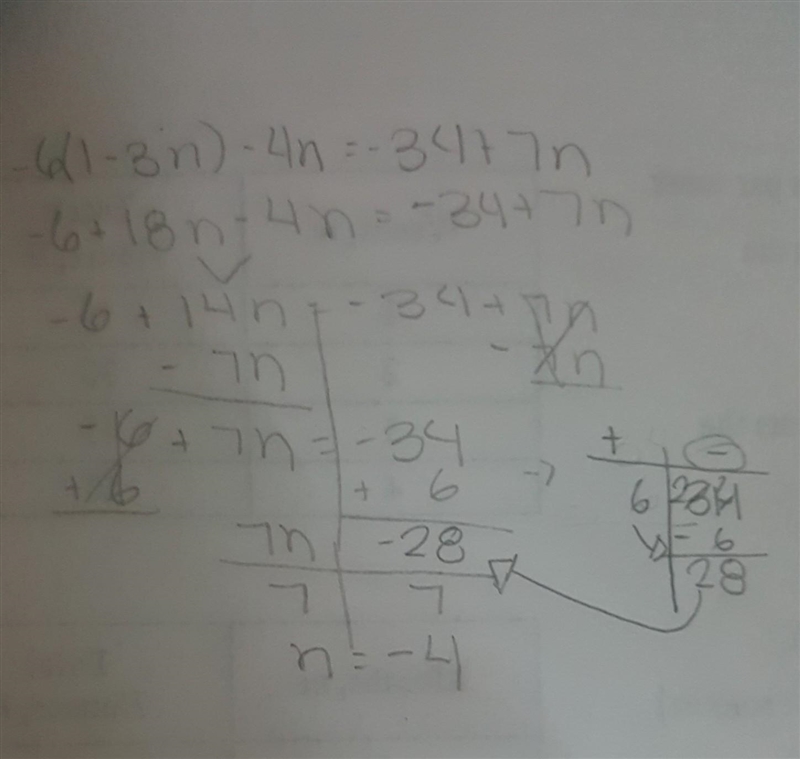 -6(1-3n)-4n=-34+7n
-6+18n-4n=-34+7n
-6+14n=-34+7n
-7n -7n
-6+7n=-34
+6 +6 →
7n -28
7 7
n=-4
+ -
6 34
-6
28